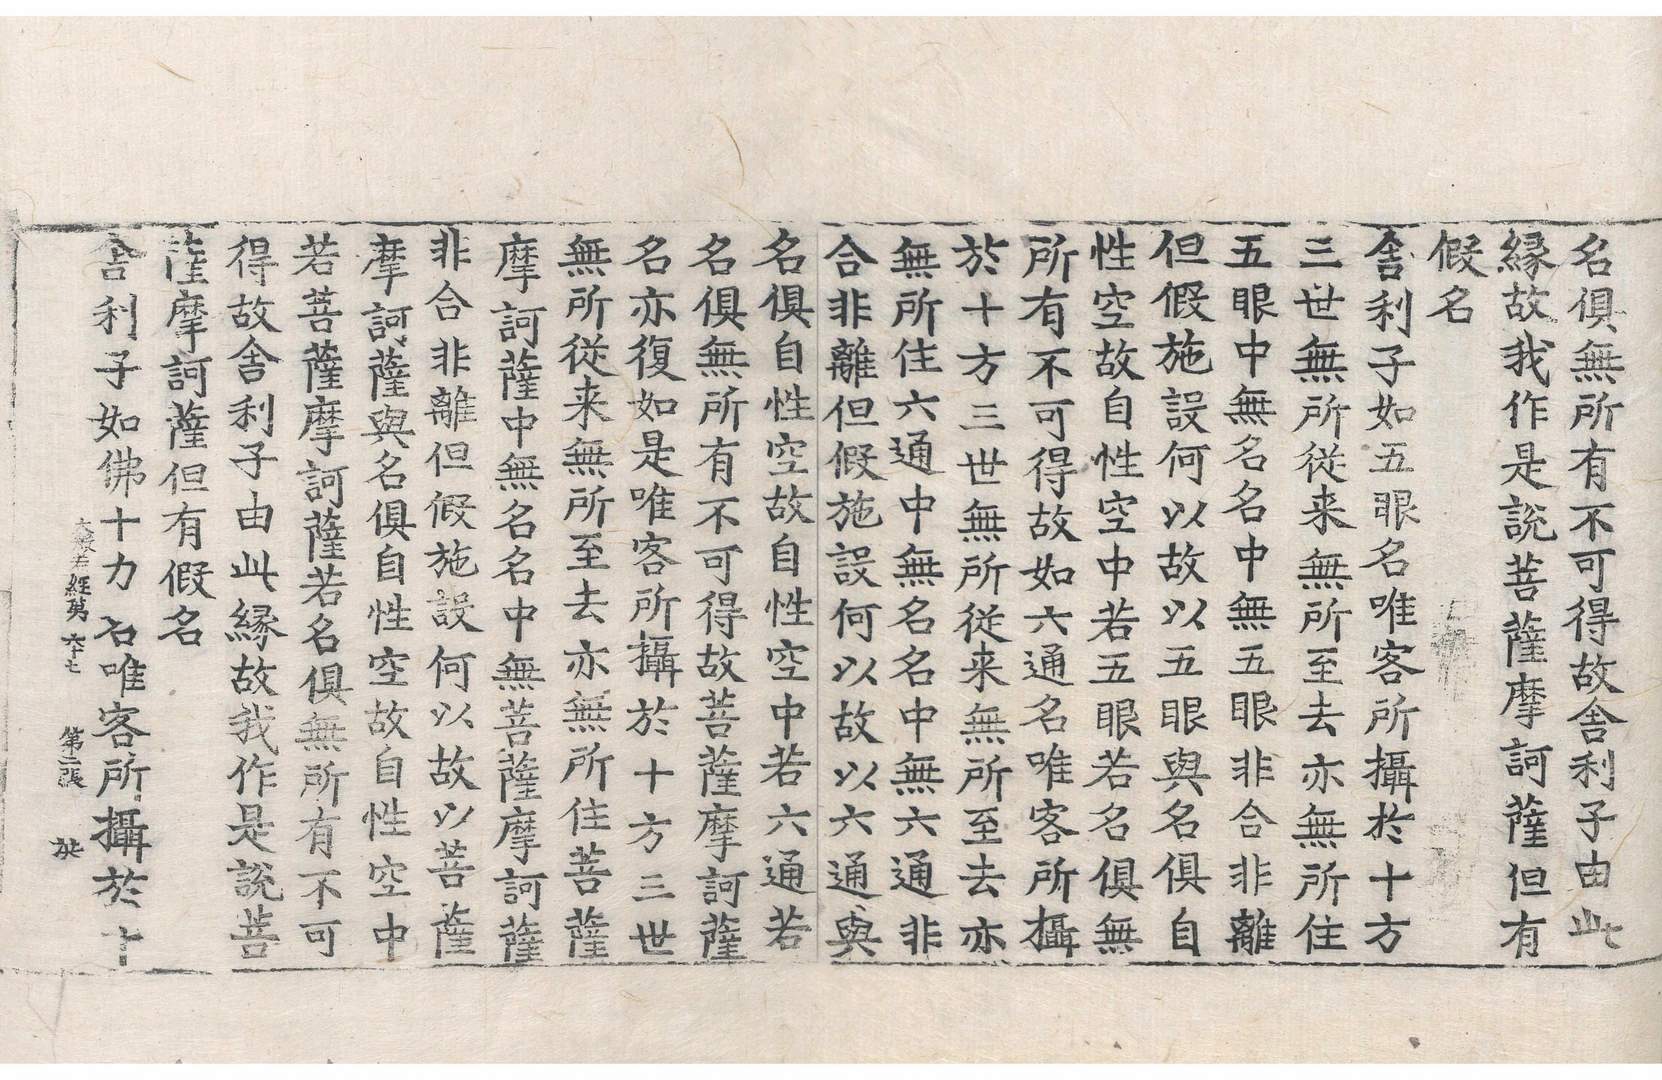 名俱無所有不可得故舍利子由此
緣故我作是說菩薩摩訶薩但有
假名
舍利子如五眼名唯客所攝於十方
三世無所從来無所至去亦無所住
五眼中無名名中無五眼非合非離
但假施設何以故以五眼與名俱自
性空故自性空中若五眼若名俱無
所有不可得故如六通名唯客所攝
於十方三世無所從来無所至去亦
無所住六通中無名名中無六通非
合非離但假施設何以故以六通與
名俱自性空故自性空中若六通若
名俱無所有不可得故菩薩摩訶薩
名亦復如是唯客所攝於十方三世
無所從来無所至去亦無所住菩薩
摩訶薩中無名名中無菩薩摩訶薩
非合非離但假施設何以故以菩薩
摩訶薩與名俱自性空故自性空中
若菩薩摩訶薩若名俱無所有不可
得故舍利子由此緣故我作是說菩
薩摩訶薩但有假名
舍利子如佛十力名唯客所攝於十
大般若經第六十七 第二張